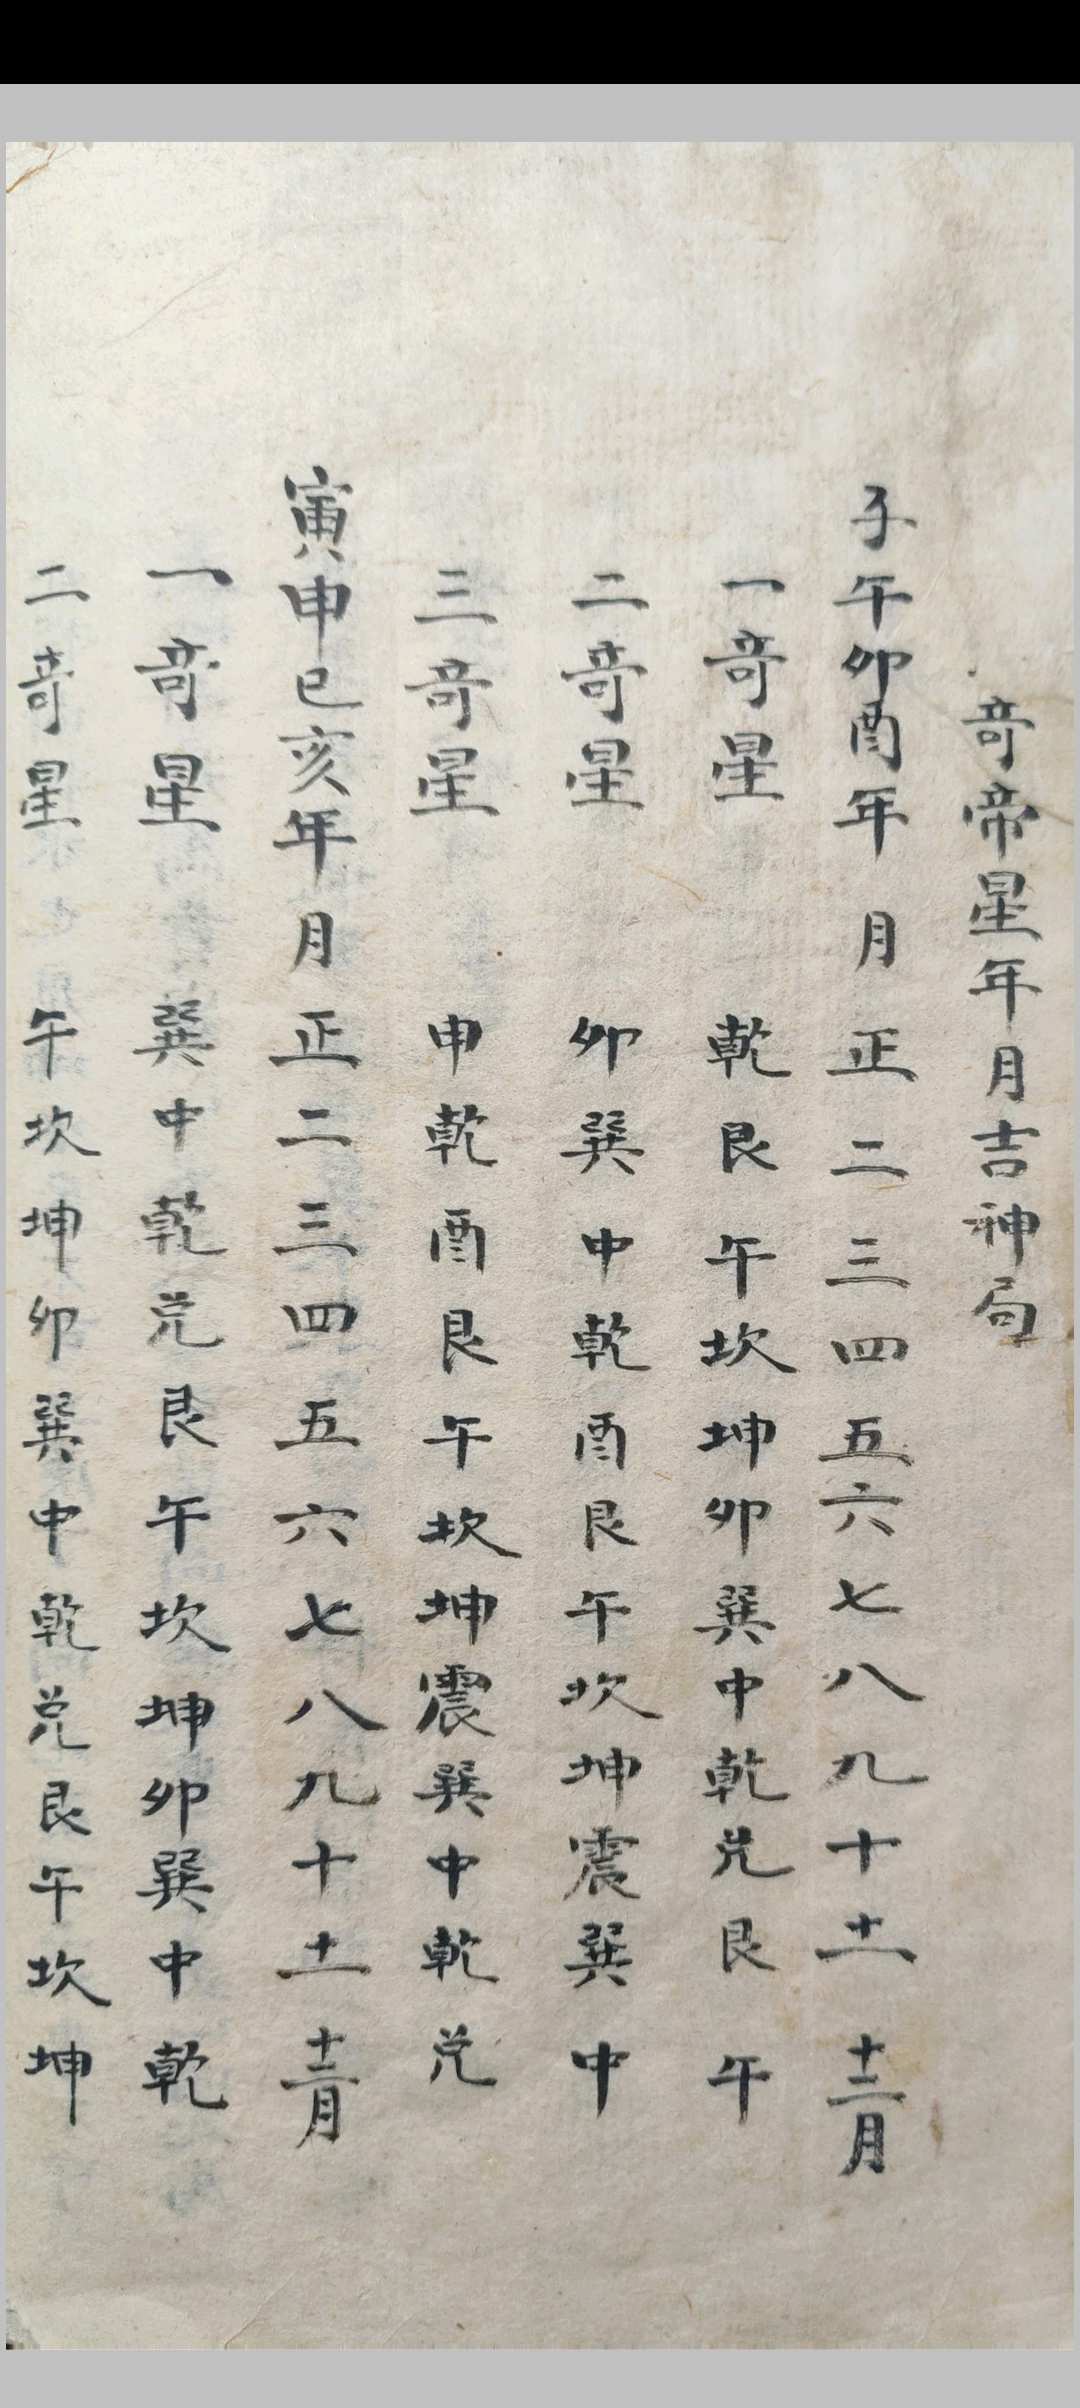 竒帝星年月吉神局
子午卯酉年 月 正二三四五六七八九十十一十二月
一竒星 乾艮午坎坤卯巽中乾兑艮午
二竒星 卯巽中乾酉艮午坎坤震巽中
三竒星 申乾酉艮午坎坤震巽中乾兑
寅申巳亥年月 正二三四五六七八九十十一十二月
一竒星 巽中乾兑艮午坎坤卯巽中乾
二竒星 午坎坤卯巽中乾兑艮午坎坤